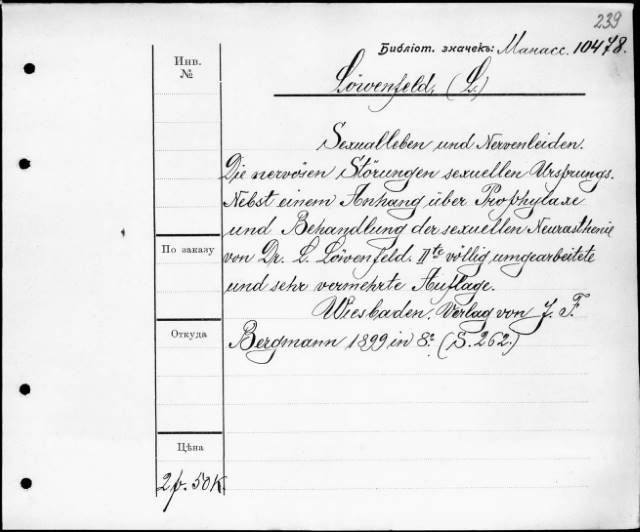 239
Библіот. значекъ: Манасс. 10478.
Инв.
№
Löwenfeld, (L.)
Sexualleben und Nervenleiden.
Die nervösen Störungen sexuellen Ursprungs.
Nebst einem Anhang über Prophylaxe
und Behandlung der sexuellen Neurasthenie
По заказу
von Dr. L. Löwenfeld. IIte völlig umgearbeitete
und sehr vermehrte Auflage.
Wiesbaden. Verlag von J. F.
Откуда
Bergmann 1899 in 8º (S. 262.)
Цѣна
2 р. 50 К.